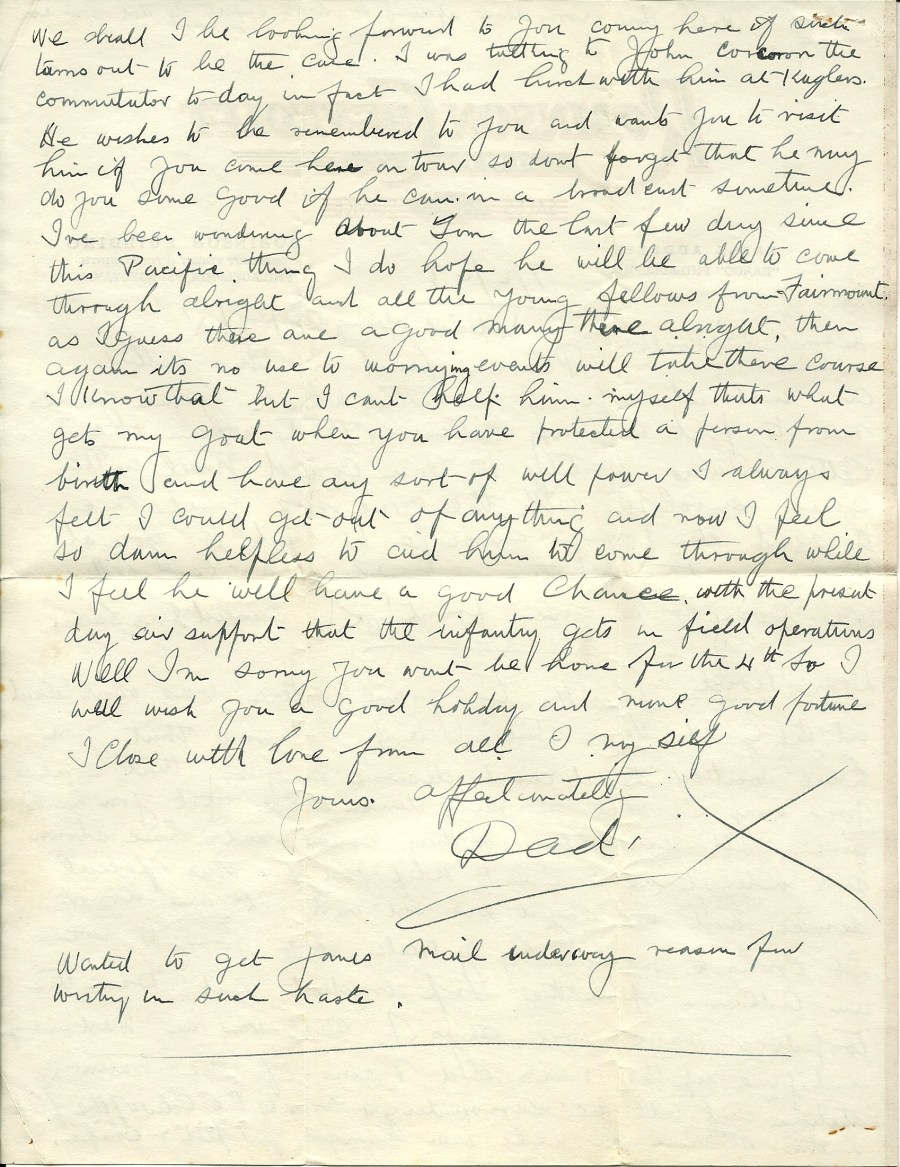 We shall I be looking forward to you coming here if such
turns out to be the case. I was talking to John Corcoron the
commutator to day in fact I had lunch with him at Kuglers.
He wishes to be remembered to you and wants you to visit
him if you come here on tour so dont forget that he may
do you some good if he can in a broadcast sometime.
I've been wondering about Tom the last few day since
this Pacific thing I do hope he will be able to come
through alright and all the young fellows from Fairmount.
as I guess there are a good many there alright, then
again its no use to worrying events will take there course
I know that but I cant help him myself thats what
gets my goat when you have protected a person from
birth and have any sort of will power I always
felt I could get out of anything and now I feel
so damn helpless to aid him to come through while
I feel he will have a good Chance with the present
day air support that the infantry gets in field operations
Well I'm sorry you wont be home for the 4th so I
will wish you a good holiday and more good fortune
I Close with love from all I my self
Yours. Affectionately
Dad. X
Wanted to get mail underway reason for
writing in such haste.